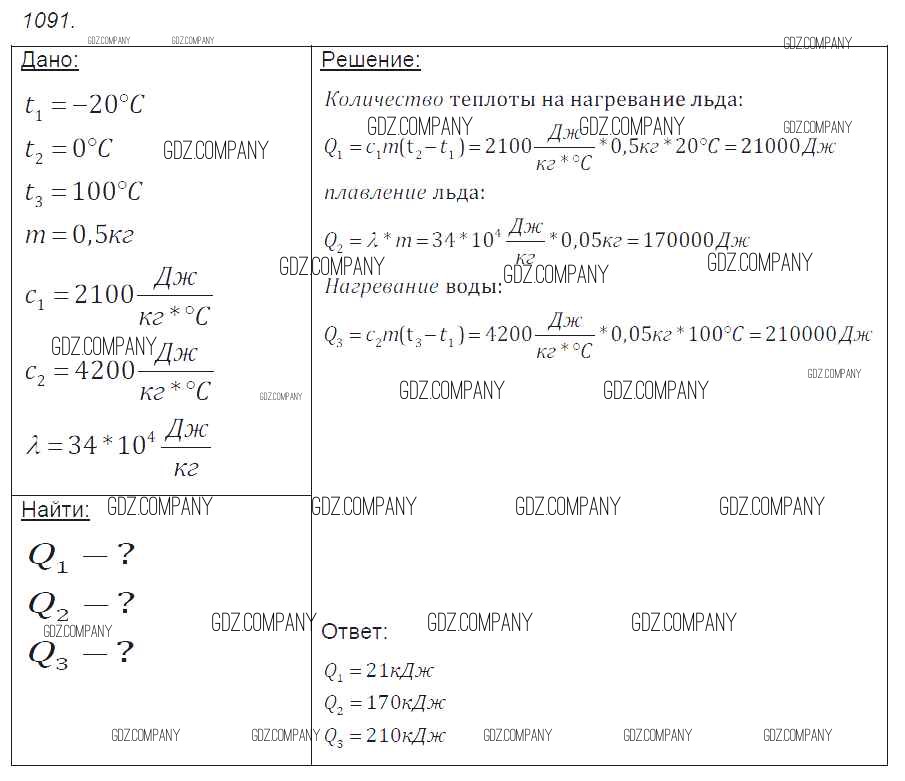 1091.
GDZ.COMPANY GDZ.COMPANY GDZ.COMPANY
Дано:
t₁ = −20°C
t₂ = 0°C GDZ.COMPANY
t₃ = 100°C
m = 0,5кг
c₁ = 2100 Дж/кг*°C
GDZ.COMPANY
c₂ = 4200 Дж/кг*°C
GDZ.COMPANY
λ = 34*10⁴ Дж/кг
Найти: GDZ.COMPANY
Q₁ − ?
Q₂ − ?
GDZ.COMPANY
Q₃ − ?
GDZ.COMPANY
Решение:
Количество теплоты на нагревание льда:
GDZ.COMPANY GDZ.COMPANY GDZ.COMPANY
Q₁ = c₁m(t₂−t₁) = 2100 Дж/кг*°C *0,5кг*20°C = 21000Дж
плавление льда:
Q₂ = λ*m = 34*10⁴ Дж/кг *0,05кг = 170000Дж
GDZ.COMPANY GDZ.COMPANY GDZ.COMPANY
Нагревание воды:
Q₃ = c₂m(t₃−t₁) = 4200 Дж/кг*°C *0,05кг*100°C = 210000Дж
GDZ.COMPANY
GDZ.COMPANY GDZ.COMPANY
GDZ.COMPANY GDZ.COMPANY GDZ.COMPANY
GDZ.COMPANY GDZ.COMPANY GDZ.COMPANY
Ответ:
Q₁ = 21кДж
Q₂ = 170кДж
Q₃ = 210кДж
GDZ.COMPANY GDZ.COMPANY GDZ.COMPANY GDZ.COMPANY